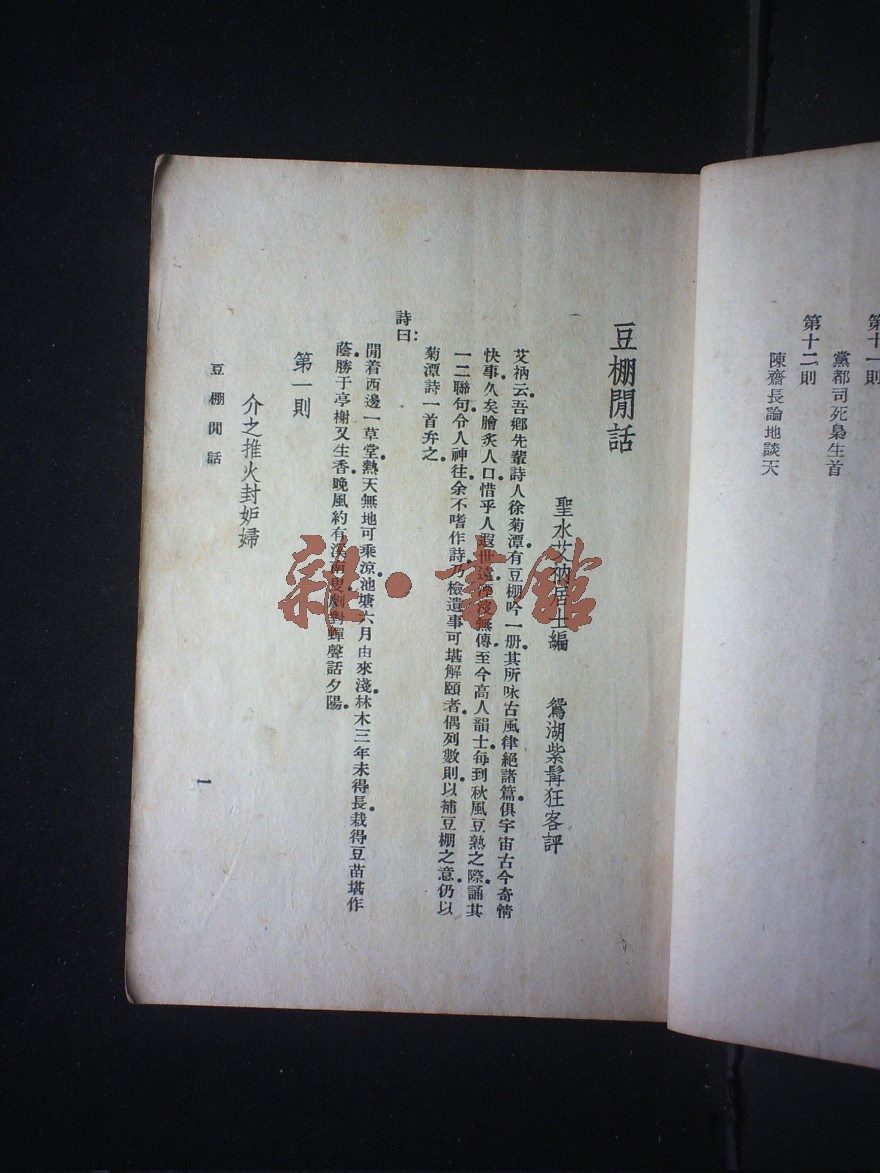 第十一則
黨都司死梟生首
第十二則
陳齋長論地談天
豆棚閒話
聖水艾衲居士編　鴛湖紫髯狂客評
艾衲云。吾鄉先輩詩人徐菊潭有豆棚吟一册。其所咏古風律絕諸篇。俱宇宙古今奇情
快事。久矣膾炙人口。惜乎人遐世遠。湮沒無傳。至今高人韻士。每到秋風豆熟之際。誦其
一二聯句。令人神往。余不嗜作詩。乃檢遺事可堪解頤者。偶列數則。以補豆棚之意。仍以
菊潭詩一首弁之。
詩曰：
閒着西邊一草堂。熱天無地可乘涼。池塘六月由來淺。林木三年未得長。栽得豆苗堪作
蔭。勝于亭榭又生香。晚風約有溪南叟。劇對蟬聲話夕陽。
第一則
介之推火封妒婦
豆棚閒話
一
雜·書館